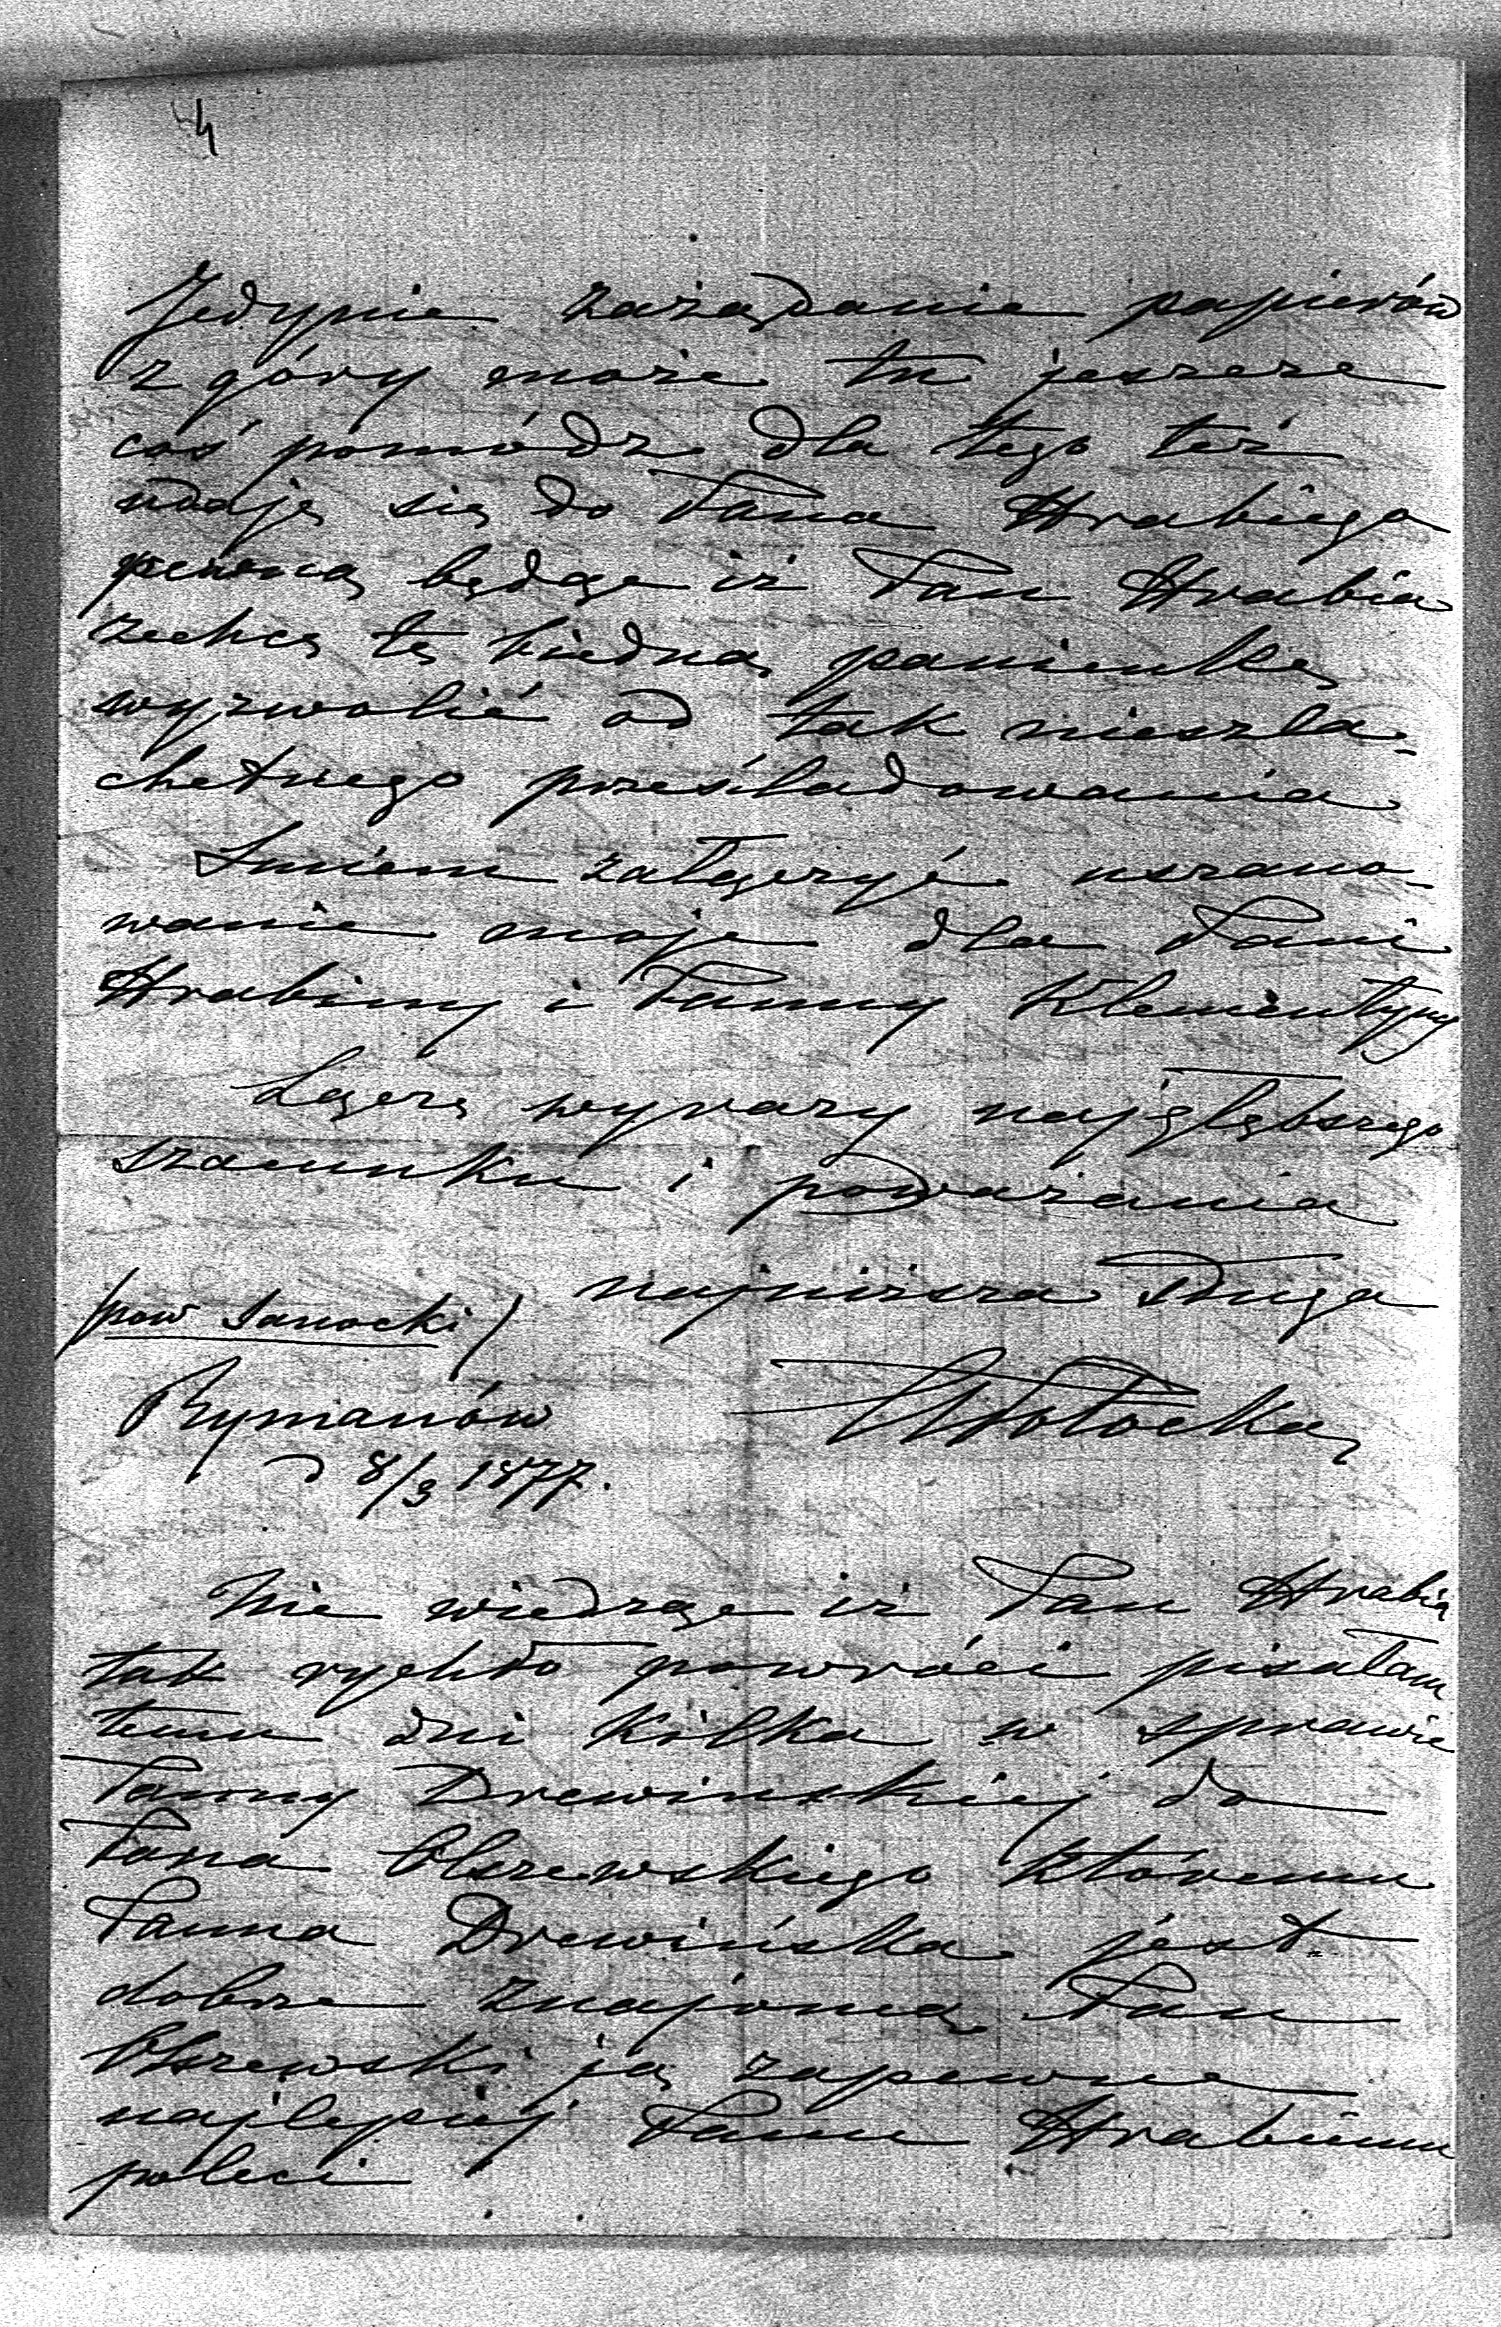 4
Jedynie zażądanie papierów
z góry może tu jeszcze
coś pomódz dla tego też
udaję się do Pana Hrabiego
pewną będąc iż Pan Hrabia
zechcę tę biedną panienkę
wyzwolić od tak nieszla-
chetnego prześladowania
Śmiem załączyć uszano-
wanie moje dla Pani
Hrabiny i Panny Klementyny
Łączę wyrazy najgłębszego
szacunku i poważania
najniższa sługa
/pow Sanocki/
Rymanów
d 8/3 1877.
Potocka
Nie wiedząc iż Pan Hrabia
tak rychło powróci pisałam
temu dni kilka w sprawie
Panny Drewińskiéj do
Pana Olszewskiego któremu
Panna Drewińska jest
dobrze znajomą Pan
Olszewski ją zapewne
najlepiéj Panu Hrabiemu
poleci